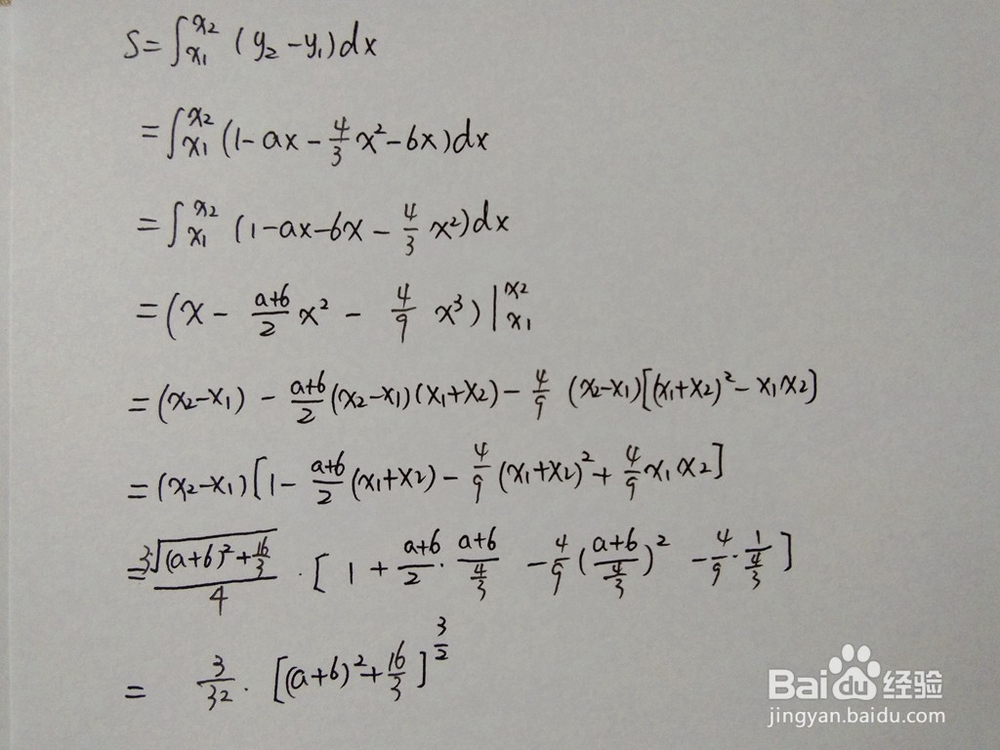 S=∫_{x1}^{x2} (y2-y1)dx
=∫_{x1}^{x2} (1-ax-\frac{4}{3}x²-6x)dx
=∫_{x1}^{x2} (1-ax-6x-\frac{4}{3}x²)dx
=(x-\frac{a+6}{2}x²-\frac{4}{9}x³)|_{x1}^{x2}
=(x2-x1)-\frac{a+6}{2}(x2-x1)(x1+x2)-\frac{4}{9}(x2-x1)[(x1+x2)²-x1x2]
=(x2-x1)[1-\frac{a+6}{2}(x1+x2)-\frac{4}{9}(x1+x2)²+\frac{4}{9}x1x2]
=\frac{3\sqrt{(a+6)²+\frac{16}{3}}}{4}·[1+\frac{a+6}{2}·\frac{a+6}{\frac{4}{3}}-\frac{4}{9}(\frac{a+6}{\frac{4}{3}})²-\frac{4}{9}·\frac{1}{\frac{4}{3}}]
=\frac{3}{32}·[(a+6)²+\frac{16}{3}]^{\frac{3}{2}}
Baidu经验
jingyan.baidu.com